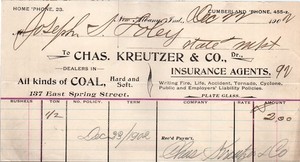 HOME 'PHONE, 23. CUMBERLAND 'PHONE, 455-
New Albany, Ind., Dec 22 1902
Joseph S. Foley
State
To CHAS. KREUTZER & CO., Dr.
DEALERS IN INSURANCE AGENTS,
All kinds of COAL, Hard and Soft.
Writing Fire, Life, Accident, Tornado, Cyclone,
Public and Employers' Liability Policies.
137 East Spring Street. PLATE GLASS.
BUSHELS TON NO. POLICY. TERM COMPANY RATE AMOUNT
1/2 $ 2.00
Dec 22/1902
Rec'd Paym't.
Chas Kreutzer & Co